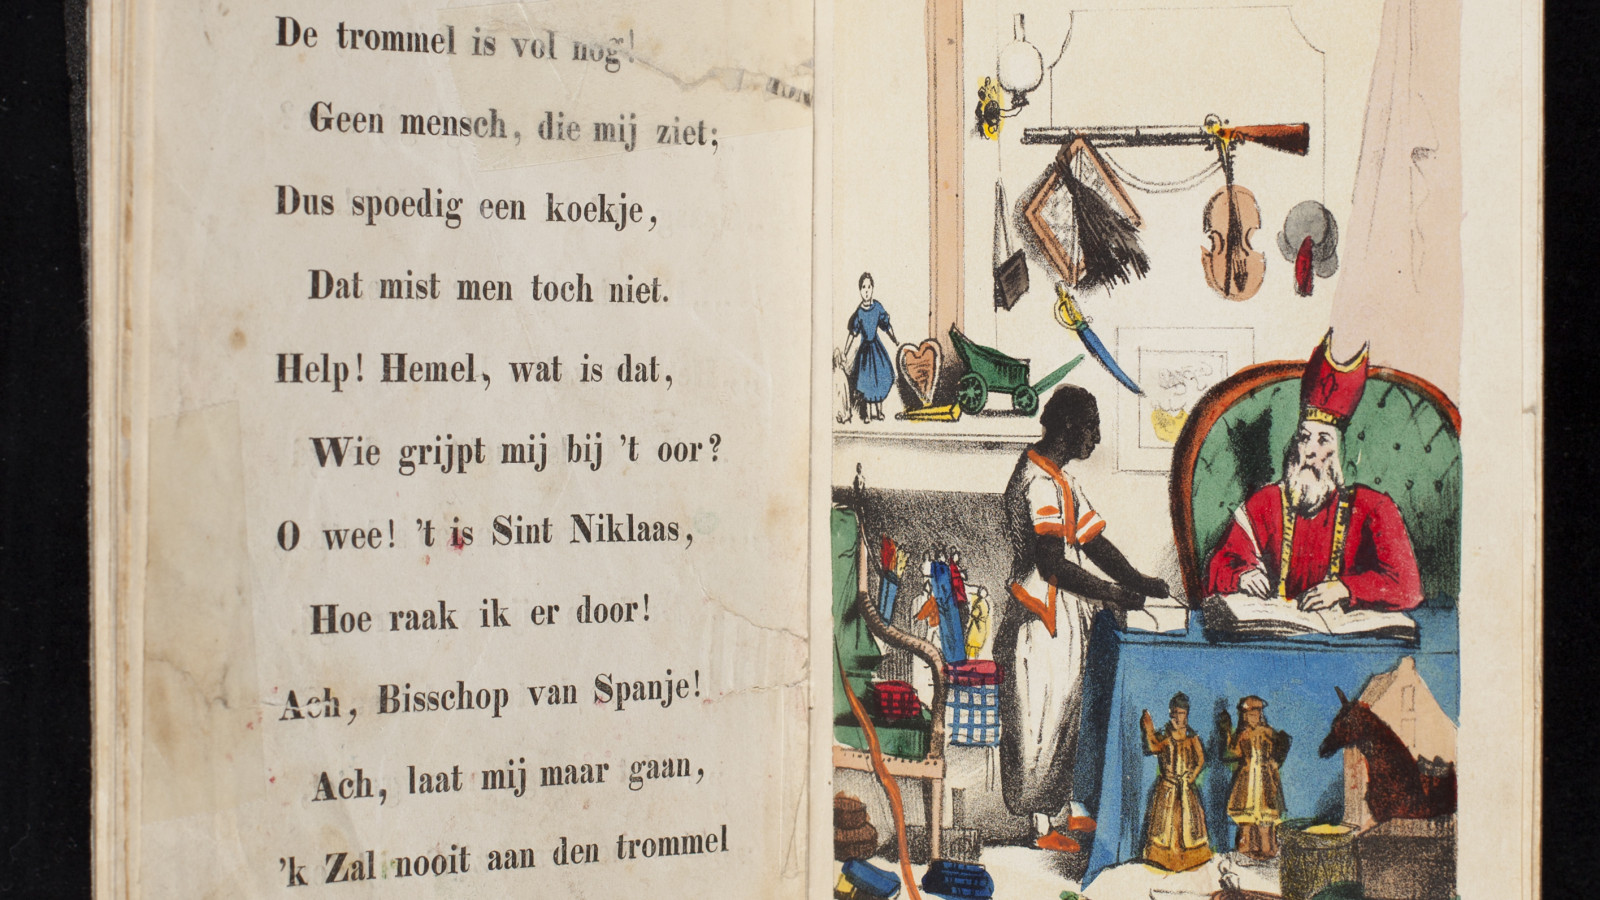 De trommel is vol nog!
Geen mensch, die mij ziet;
Dus spoedig een koekje,
Dat mist men toch niet.
Help! Hemel, wat is dat,
Wie grijpt mij bij 't oor?
O wee! 't is Sint Niklaas,
Hoe raak ik er door!
Ach, Bisschop van Spanje!
Ach, laat mij maar gaan,
'k Zal nooit aan den trommel